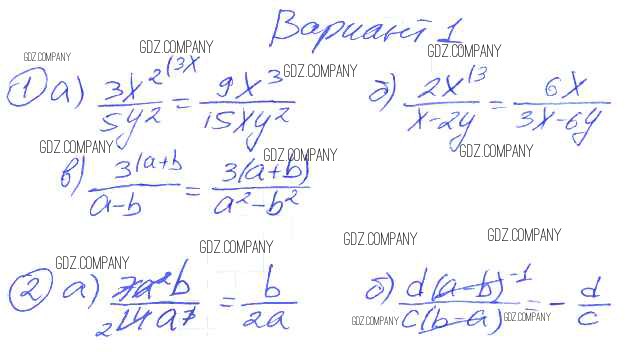 Вариант 1
GDZ.COMPANY GDZ.COMPANY GDZ.COMPANY
① а) 3x² ⁽³ˣ / 5y² = 9x³ / 15xy² GDZ.COMPANY б) 2x ⁽³ / x-2y = 6x / 3x-6y
GDZ.COMPANY GDZ.COMPANY GDZ.COMPANY
в) 3 ⁽ᵃ⁺ᵇ / a-b = 3(a+b) / a²-b²
GDZ.COMPANY GDZ.COMPANY GDZ.COMPANY GDZ.COMPANY
② а) 7a²b / ₂14a³ = b / 2a б) d(a-b)⁻¹ / c(b-a) = - d / c
GDZ.COMPANY GDZ.COMPANY